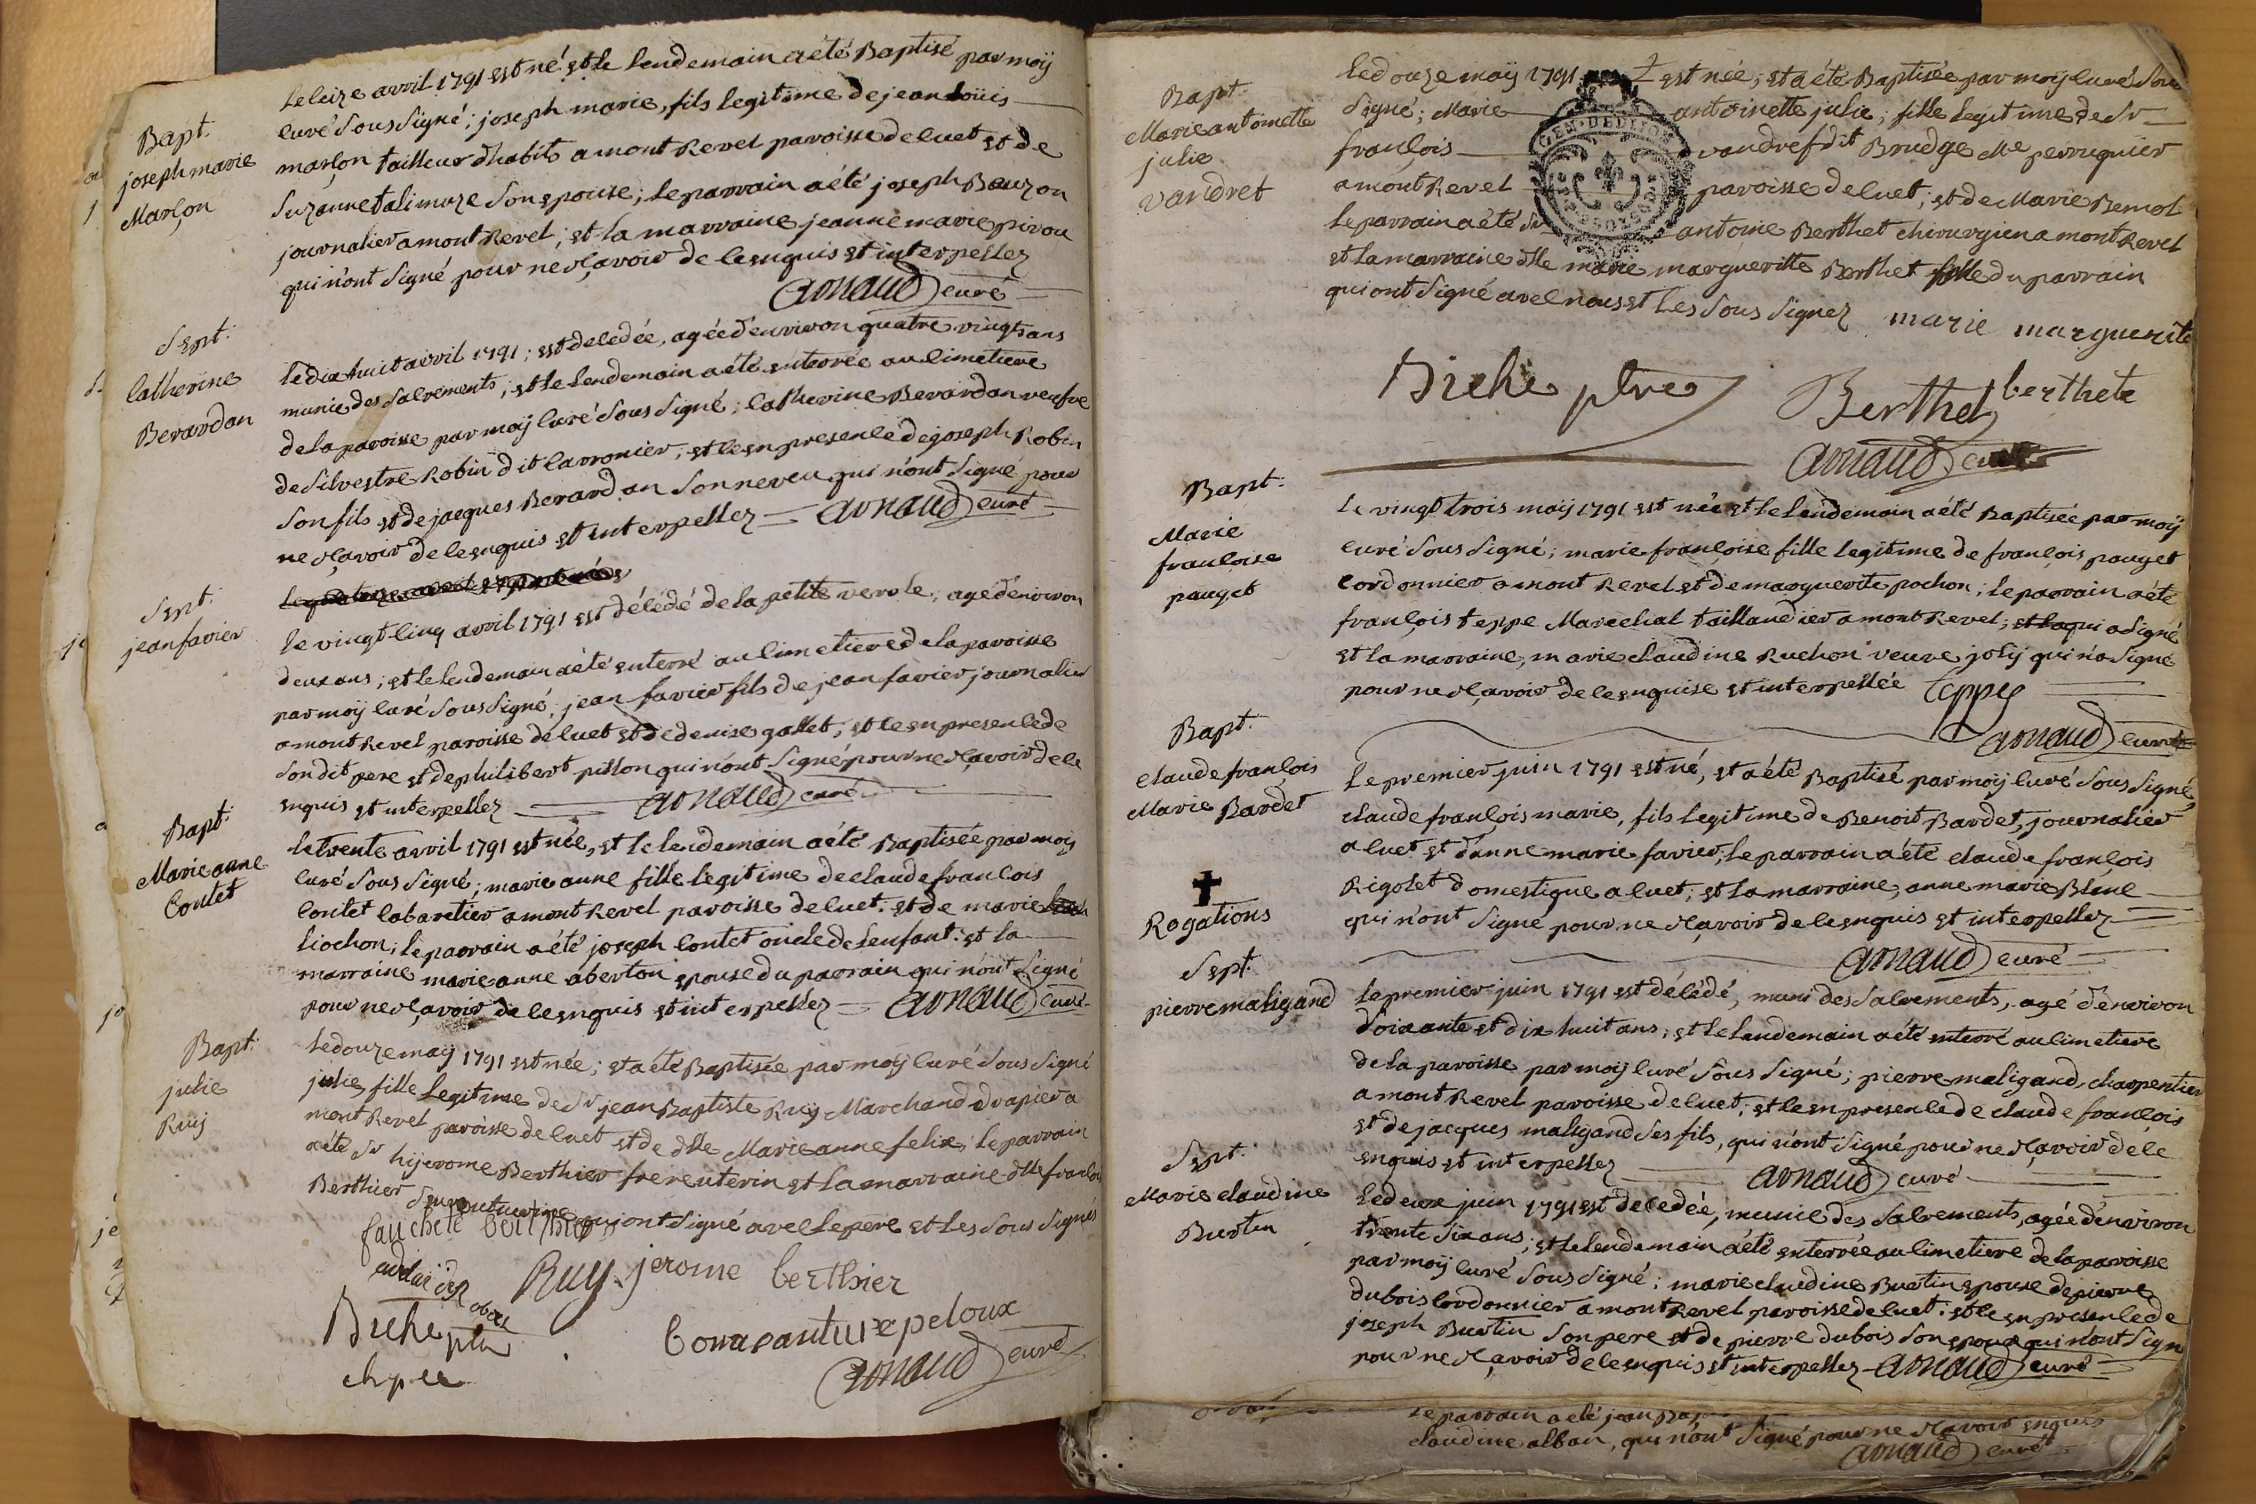 Bapt.
joseph marie
Marçon
Le seize avril 1791 est né et le lendemain a été Baptisé par moÿ
curé sous signé; joseph marie, fils legitime de jean Loüis
marçon tailleur d'habits a mont Revel paroisse de cuet et de
Suzanne talimaze son epouse; le parrain a été joseph Beuzon
journalier a mont Revel; et la marraine jeanne marie pirou
qui n'ont signé pour ne sçavoir de ce enquis et interpellez
arnaud curé
Sept.
Catherine
Berardan
Le dix huit avril 1791; est decedée, agée d'environ quatre vingts ans
munie des sacrements; et le lendemain a été enterrée au cimetiere
de la paroisse par moÿ curé sous signé; Catherine Berardan veufve
de Silvestre Robin dit laronier, et ce en presence de joseph Robin
son fils et de jacques Berardan son neveu qui n'ont signé pour
ne sçavoir de ce enquis et interpellez arnaud curé
Sept.
jean favier
Le vingt cinq avril 1791 est décédé de la petite verole, agé d'environ
deux ans; et le lendemain a été enterré au cimetiere de la paroisse
par moÿ curé sous signé; jean favier fils de jean favier journalier
a mont Revel paroisse de cuet et de denise gallet, et ce en presence de
son dit pere et de philibert pillon qui n'ont signé pour ne sçavoir de ce
enquis et interpellez arnaud curé
Bapt.
Marie anne
Contet
Le trente avril 1791 est née, et le lendemain a été Baptisée par moÿ
curé sous signé; marie anne fille legitime de claude françois
Contet cabaretier a mont Revel paroisse de cuet. et de marie
Liochon; le parrain a été joseph Contet oncle de l'enfant: et la
marraine marie anne aberton epouse du parrain qui n'ont signé
pour ne sçavoir de ce enquis et interpellez arnaud curé
Bapt.
julie
Ruÿ
Le douze maÿ 1791 est née; et a été Baptisée par moÿ curé sous signé
julie, fille legitime de Sr jean Baptiste Ruÿ Marchand drapier a
mont Revel paroisse de cuet et de dlle Marie anne felix; le parrain
a été Sr hÿerome Berthier frere uterin et la marraine dlle
Berthier soeur uterine qui ont signé avec le pere et les sous signés
fanchete berthier
Ruy jerome berthier
Biche ptre
Bonavanture peloux
arnaud curé
Bapt.
Marie antoinette
julie
vandret
Le douze maÿ 1791 est née; et a été Baptisée par moÿ curé sous
signé; Marie antoinette julie; fille legitime de Sr
françois vandref dit Brudge Me perruquier
a mont Revel paroisse de cuet; et de Marie Bemol
le parrain a été Sr antoine Berthet chirurgien a mont Revel
et la marraine dlle marie margueritte Berthet fille du parrain
qui ont signé avec nous et les sous signez marie marguerite
berthete
GEN. DE LION
Biche ptre
Berthet
arnaud curé
Bapt.
Marie
françoise
pauget
Le vingt trois maÿ 1791 est née et le lendemain a été Baptisée par moÿ
curé sous signé; marie françoise fille legitime de françois pauget
cordonnier a mont Revel et de marguerite pochon; le parrain a été
françois teppe Marechal taillandier a mont Revel; et la qui a signé
et la marraine, marie claudine Ruchon veuve jolÿ qui n'a signé
pour ne sçavoir de ce enquise et interpellée teppe
arnaud curé
Bapt.
claude françois
Marie Bardet
Le premier juin 1791 est né, et a été Baptisé par moÿ curé sous signé,
claude françois marie, fils legitime de Benoit Bardet, journalier
a cuet et d'anne marie favier, le parrain a été claude françois
Rigolet domestique a cuet; et la marraine, anne marie Blanc
qui n'ont signé pour ne sçavoir de ce enquis et interpellez
arnaud curé
Rogations
Sept.
pierre maligand
Le premier juin 1791 est décédé, muni des sacrements, agé d'environ
soixante et dix huit ans; et le lendemain a été enterré au cimetiere
de la paroisse par moÿ curé sous signé; pierre maligand, charpentier
a mont Revel paroisse de cuet; et ce en presence de claude françois
et de jacques maligand ses fils, qui n'ont signé pour ne sçavoir de ce
enquis et interpellez arnaud curé
Sept.
Marie claudine
Burtin
Le deux juin 1791 est decedée, munie des sacrements, agée d'environ
trente six ans; et le lendemain a été enterrée au cimetiere de la paroisse
par moÿ curé sous signé; marie claudine Burtin epouse de pierre
dubois cordonnier a mont Revel paroisse de cuet; et ce en presence de
joseph Burtin son pere et de pierre dubois son epoux qui n'ont signé
pour ne sçavoir de ce enquis et interpellez arnaud curé
le parrain a été jean
claudine alban, qui n'ont signé pour ne sçavoir enquis
arnaud curé